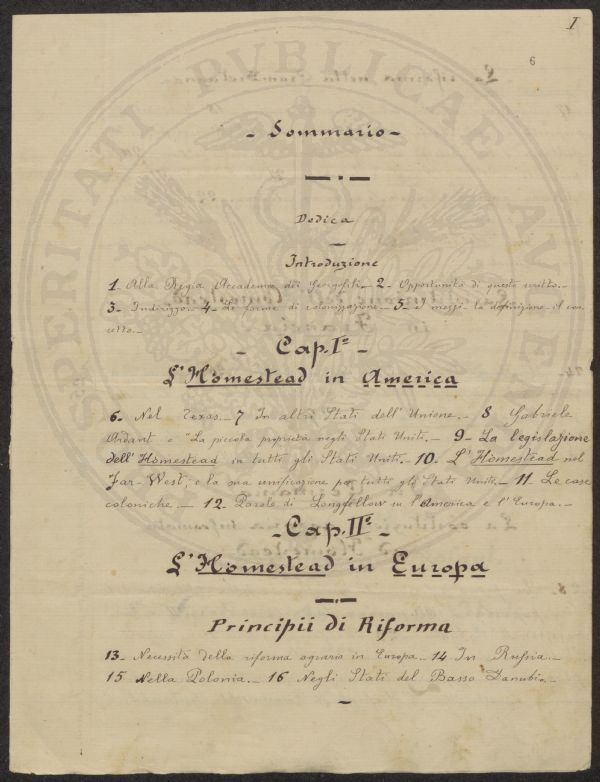 I
6
- Sommario -
Dedica
Introduzione
1- Alla Regia Accademia dei Georgofili.- 2- Opportunità di questo scritto.-
3- Indirizzo.- 4- Le forme di colonizzazione.- 5- e mezzo- la definizione il con
cetto.-
- Cap. I° -
L'Homestead in America
6- Nel Texas.- 7 In altri Stati dell'Unione.- 8 Gabriele
Ardant e "La piccola proprietà negli Stati Uniti.- 9- La legislazione
dell'Homestead in tutti gli Stati Uniti.- 10- L'Homestead nel
Far-West; e la sua unificazione per tutti gli Stati Uniti.- 11. Le case
coloniche.- 12. Parole di Longfellow su l'America e l'Europa.-
- Cap. II° -
L'Homestead in Europa
Principii di Riforma
13- Necessità della riforma agraria in Europa.- 14 In Russia.-
15 Nella Polonia.- 16 Negli Stati del Basso Danubio.-
PROSPERITATI PUBLICAE AUGENDAE